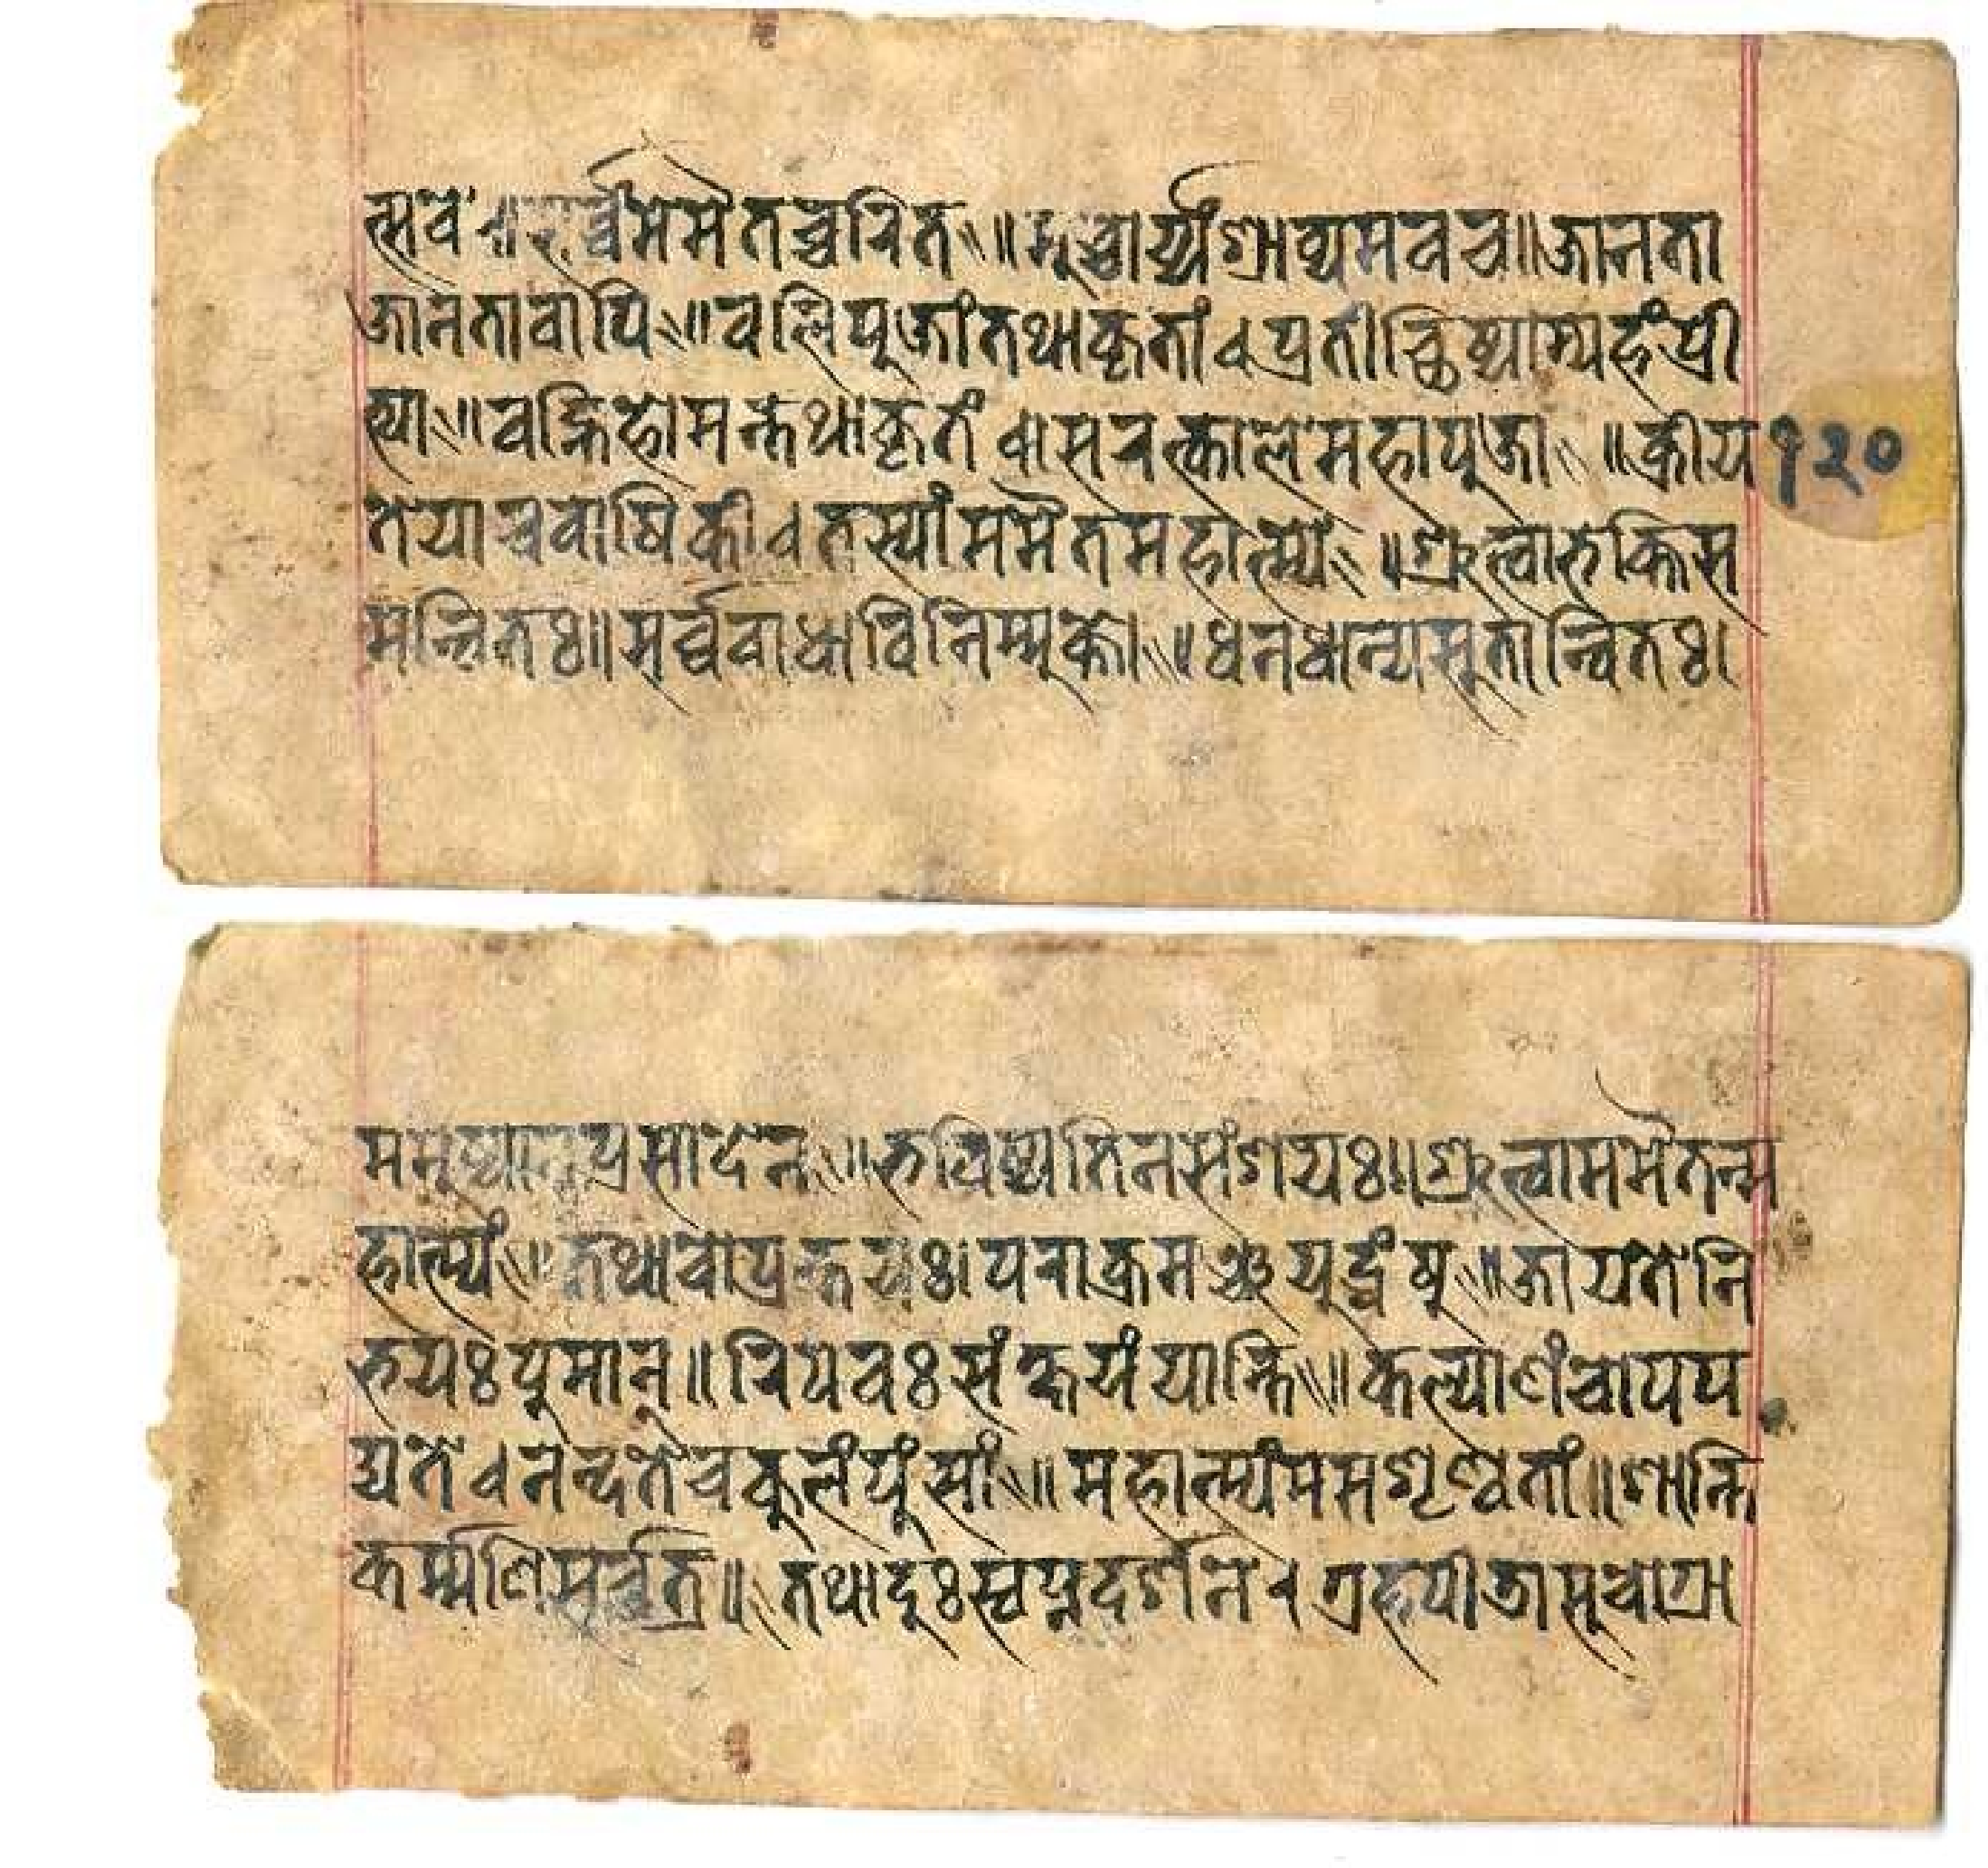 त्सवे ॥ सर्व्वंममैतच्चरित ॥ मूच्चार्य्यंश्राव्यमवच ॥ जानता
जानतावापि ॥ वलिपूजांतथाकृतां । प्रतीच्छिष्याम्यहंप्री
त्या ॥ वह्निहोमन्तथाकृतं ॥ सरत्कालेमहापूजा ॥ क्रीय १२०
तेयाचवार्षिकी । तस्यांममैतमहात्म्यं ॥ श्रुत्वाभक्तिस
मन्वितः ॥ सर्व्ववाधाविनिर्म्मूक्तो ॥ धनधान्यसूतान्वितः ।
ममूष्याप्रसादेन ॥ भविष्यतिनसंशयः ॥ श्रुत्वाममैतन्म
हात्म्यं ॥ तथाचोत्पत्तयः । पराक्रमञ्चयूद्धेषू ॥ जायतेनि
भयः पूमान् ॥ रिपवः संक्षयंयान्ति ॥ कल्याणंचोपप
द्यते । नन्दतेचकूलंपूंसां ॥ महात्म्यंममशृण्वतां ॥ शान्ति
कर्म्मणिसर्व्वत्र ॥ तथादूःस्वप्नदर्शने । ग्रहपीडासूचोग्रा